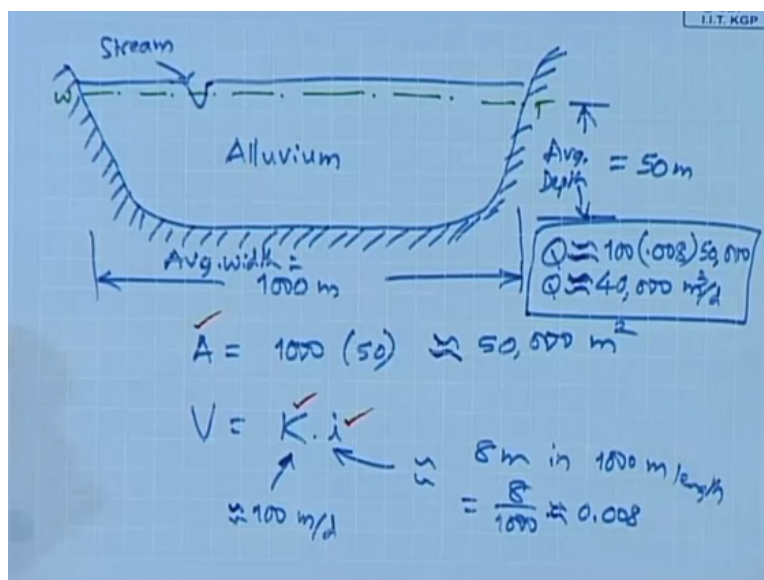 I.I.T. KGP
Stream
W
T
Alluvium
Avg.
Depth
= 50 m
Avg. width =
1000 m
Q ≈ 100 (.008) 50,000
Q ≈ 40,000 m³/d
A = 1000 (50) ≈ 50,000 m²
V = K . i
≈ 8 m in 1000 m length
≈ 100 m/d
= 8/1000 ≈ 0.008